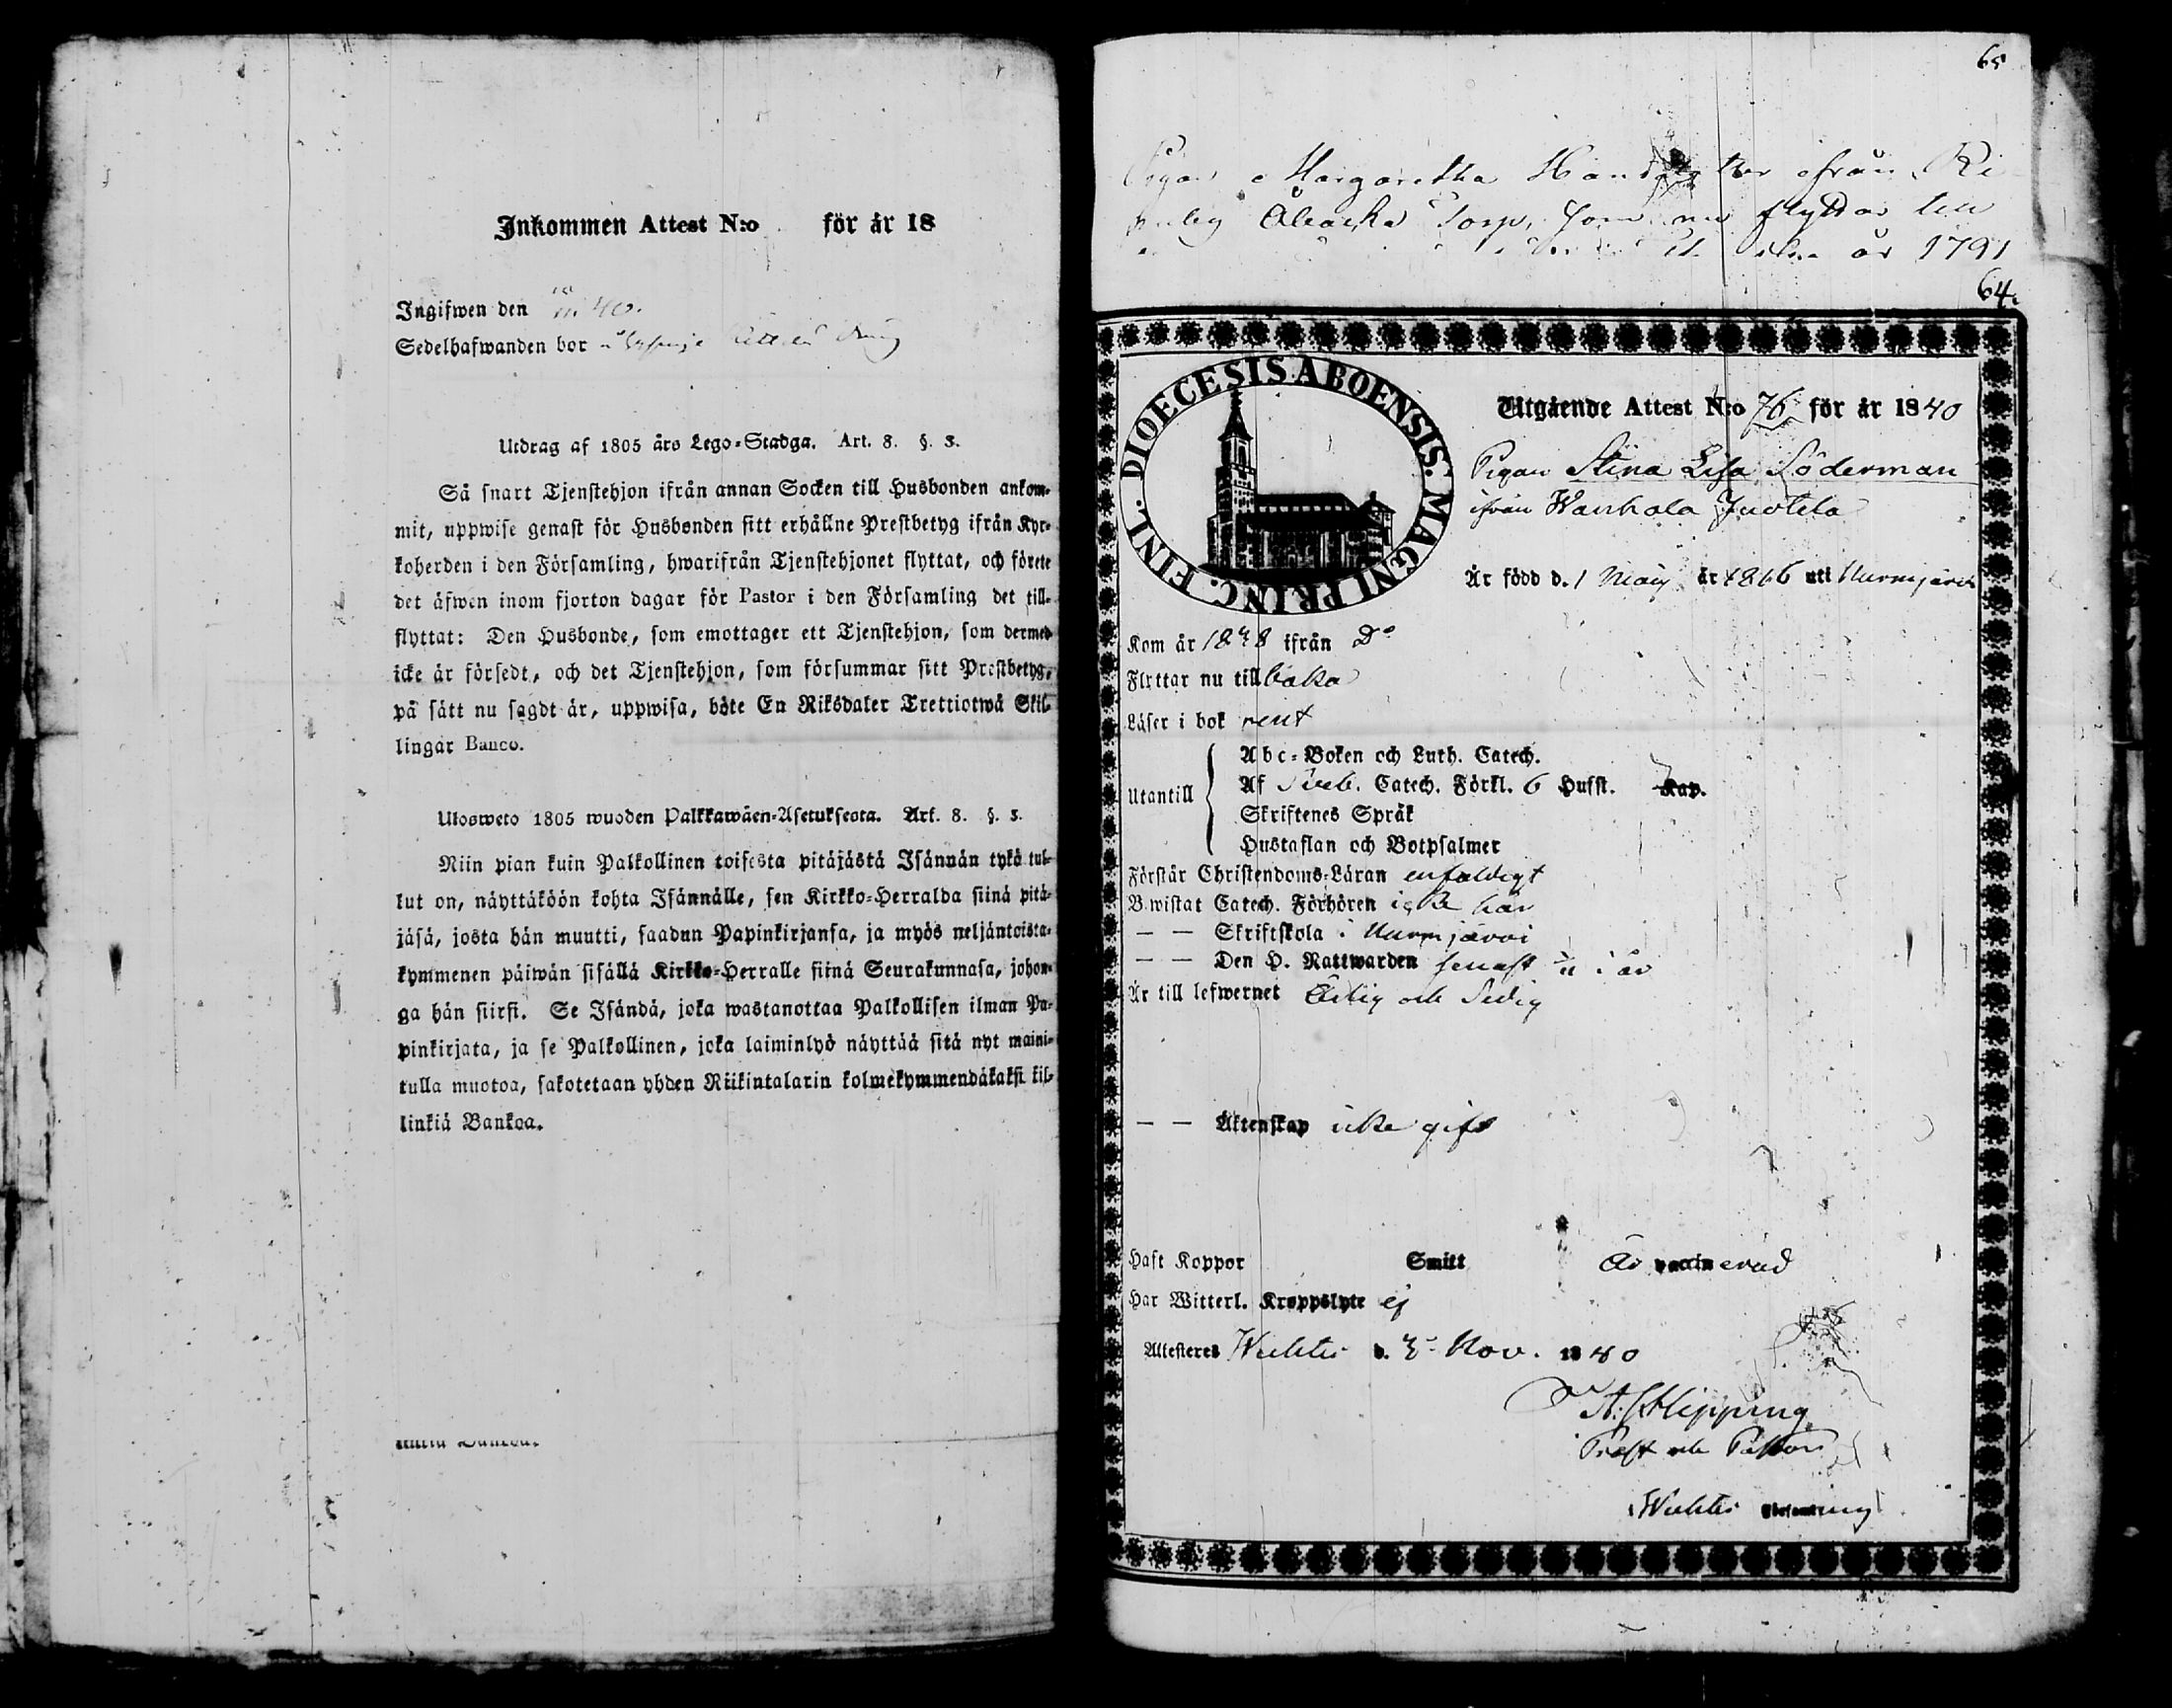 Inkommen Attest N:o för år 18
Ingifwen den
Sedelhafwanden bor
Utdrag af 1805 års Lego-Stadga. Art. 8. §. 3.
Så snart Tjenstehjon ifrån annan Socken till Husbonden ankom-
mit, uppwise genast för Husbonden sitt erhållne Prestbetyg ifrån Kyr-
koherden i den Församling, hwarifrån Tjenstehjonet flyttat, och förete
det äfwen inom fjorton dagar för Pastor i den Församling det till-
flyttat: Den Husbonde, som emottager ett Tjenstehjon, som dermed
icke är försedt, och det Tjenstehjon, som försummar sitt Prestbetyg,
på sätt nu sagdt är, uppwisa, böte En Riksdaler Trettiotwå Skil-
lingar Banco.
Ulosweto 1805 wuoden Palkkawäen-Asetuksesta. Art. 8. §. 3.
Niin pian kuin Palkollinen toisesta pitäjästä Isännän tykö tul-
lut on, näyttäköön kohta Isännälle, sen Kirkko-Herralda siinä pitä-
jäsä, josta hän muutti, saadun Papinkirjansa, ja myös neljäntoista-
kymmenen päiwän sisällä Kirkko-Herralle siinä Seurakunnasa, johon-
ga hän siirsi. Se Isändä, joka wastanottaa Palkollisen ilman Pa-
pinkirjata, ja se Palkollinen, joka laiminlyö näyttää sitä nyt maini-
tulla muotoa, sakotetaan yhden Riikintalarin kolmekymmendäkaksi kil-
linkiä Bankoa.
65
Pigan Margaretha ifrån
Torp, som nu flyttar till
år 1791
64.
DIOECESIS ABOENSIS. MAGNI PRINC. FINL.
Utgående Attest N:o 76 för år 1840
Pigan Stina Lisa Söderman
ifrån Wanhala Juotila
Är född d. 1 Maij år 1816 uti Nurmijärvi
Kom år 1838 ifrån Do
Flyttar nu till baka
Läser i bok rent
Utantill
Abc-Boken och Luth. Catech.
Af Sveb. Catech. Förkl. 6 Hufst. Kap.
Skriftenes Språk
Hustaflan och Botpsalmer
Förstår Christendoms-Läran enfaldigt
Bewistat Catech. Förhören icke här
— — Skriftskola i Nurmijärvi
— — Den H. Nattwarden senast i år
Är till lefwernet Ärlig och Sedig
— — Äktenskap icke gift
Haft Koppor Smitt Är vaccinerad
Har Witterl. Kroppslyte ej
Attesteres Wichtis d. 3 Nov. 1840
A. J. Hipping
Prost och Pastor
i Wichtis Församling